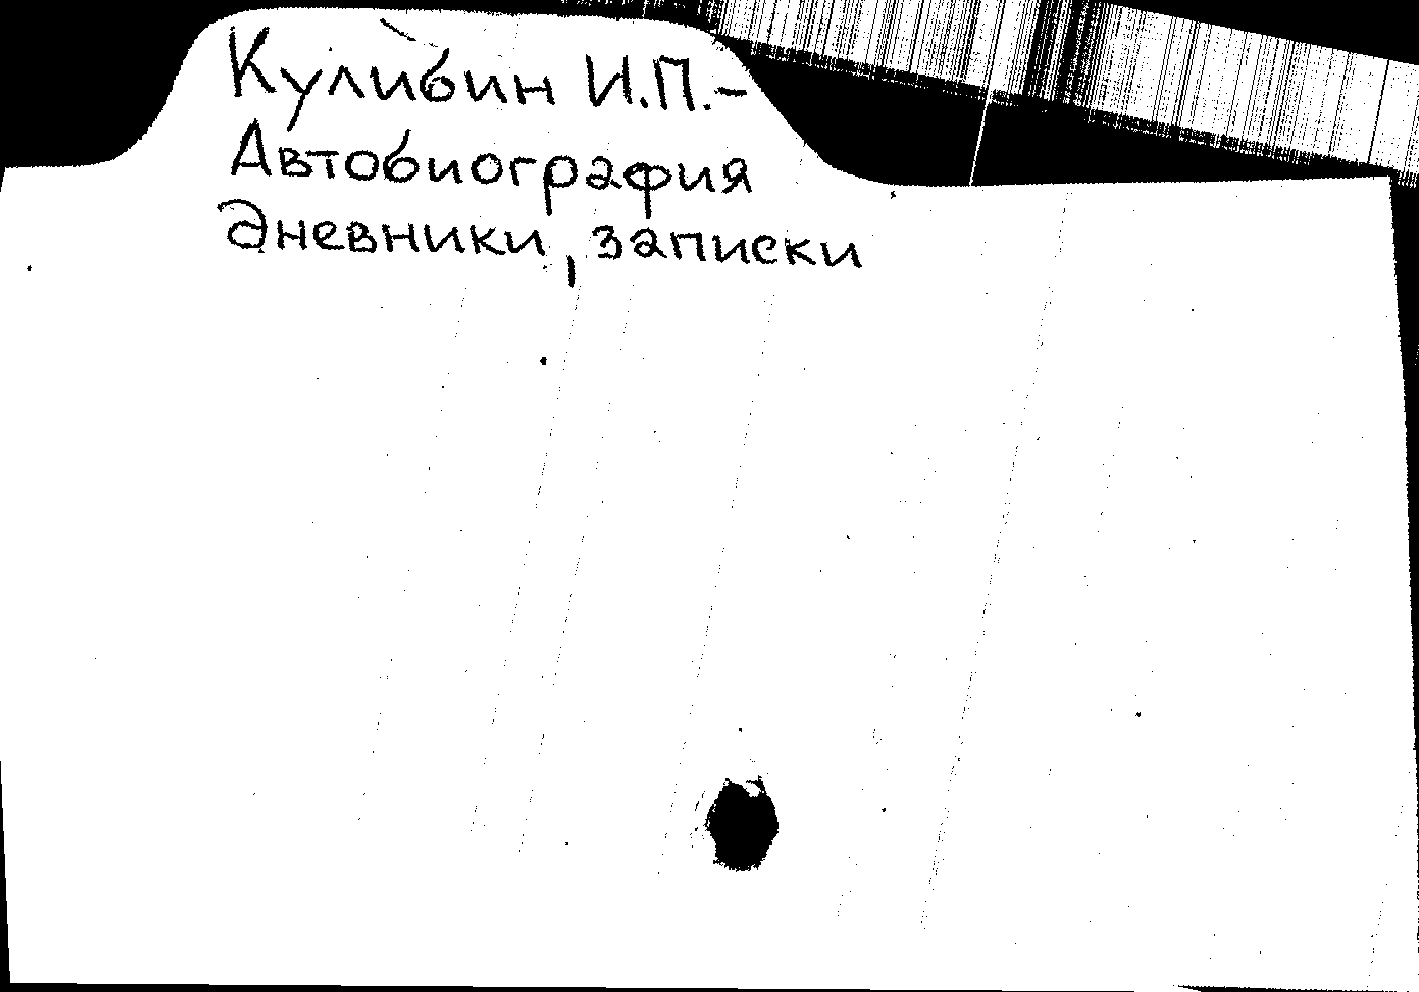 Кулибин И.П.-
Автобиография
дневники, записки